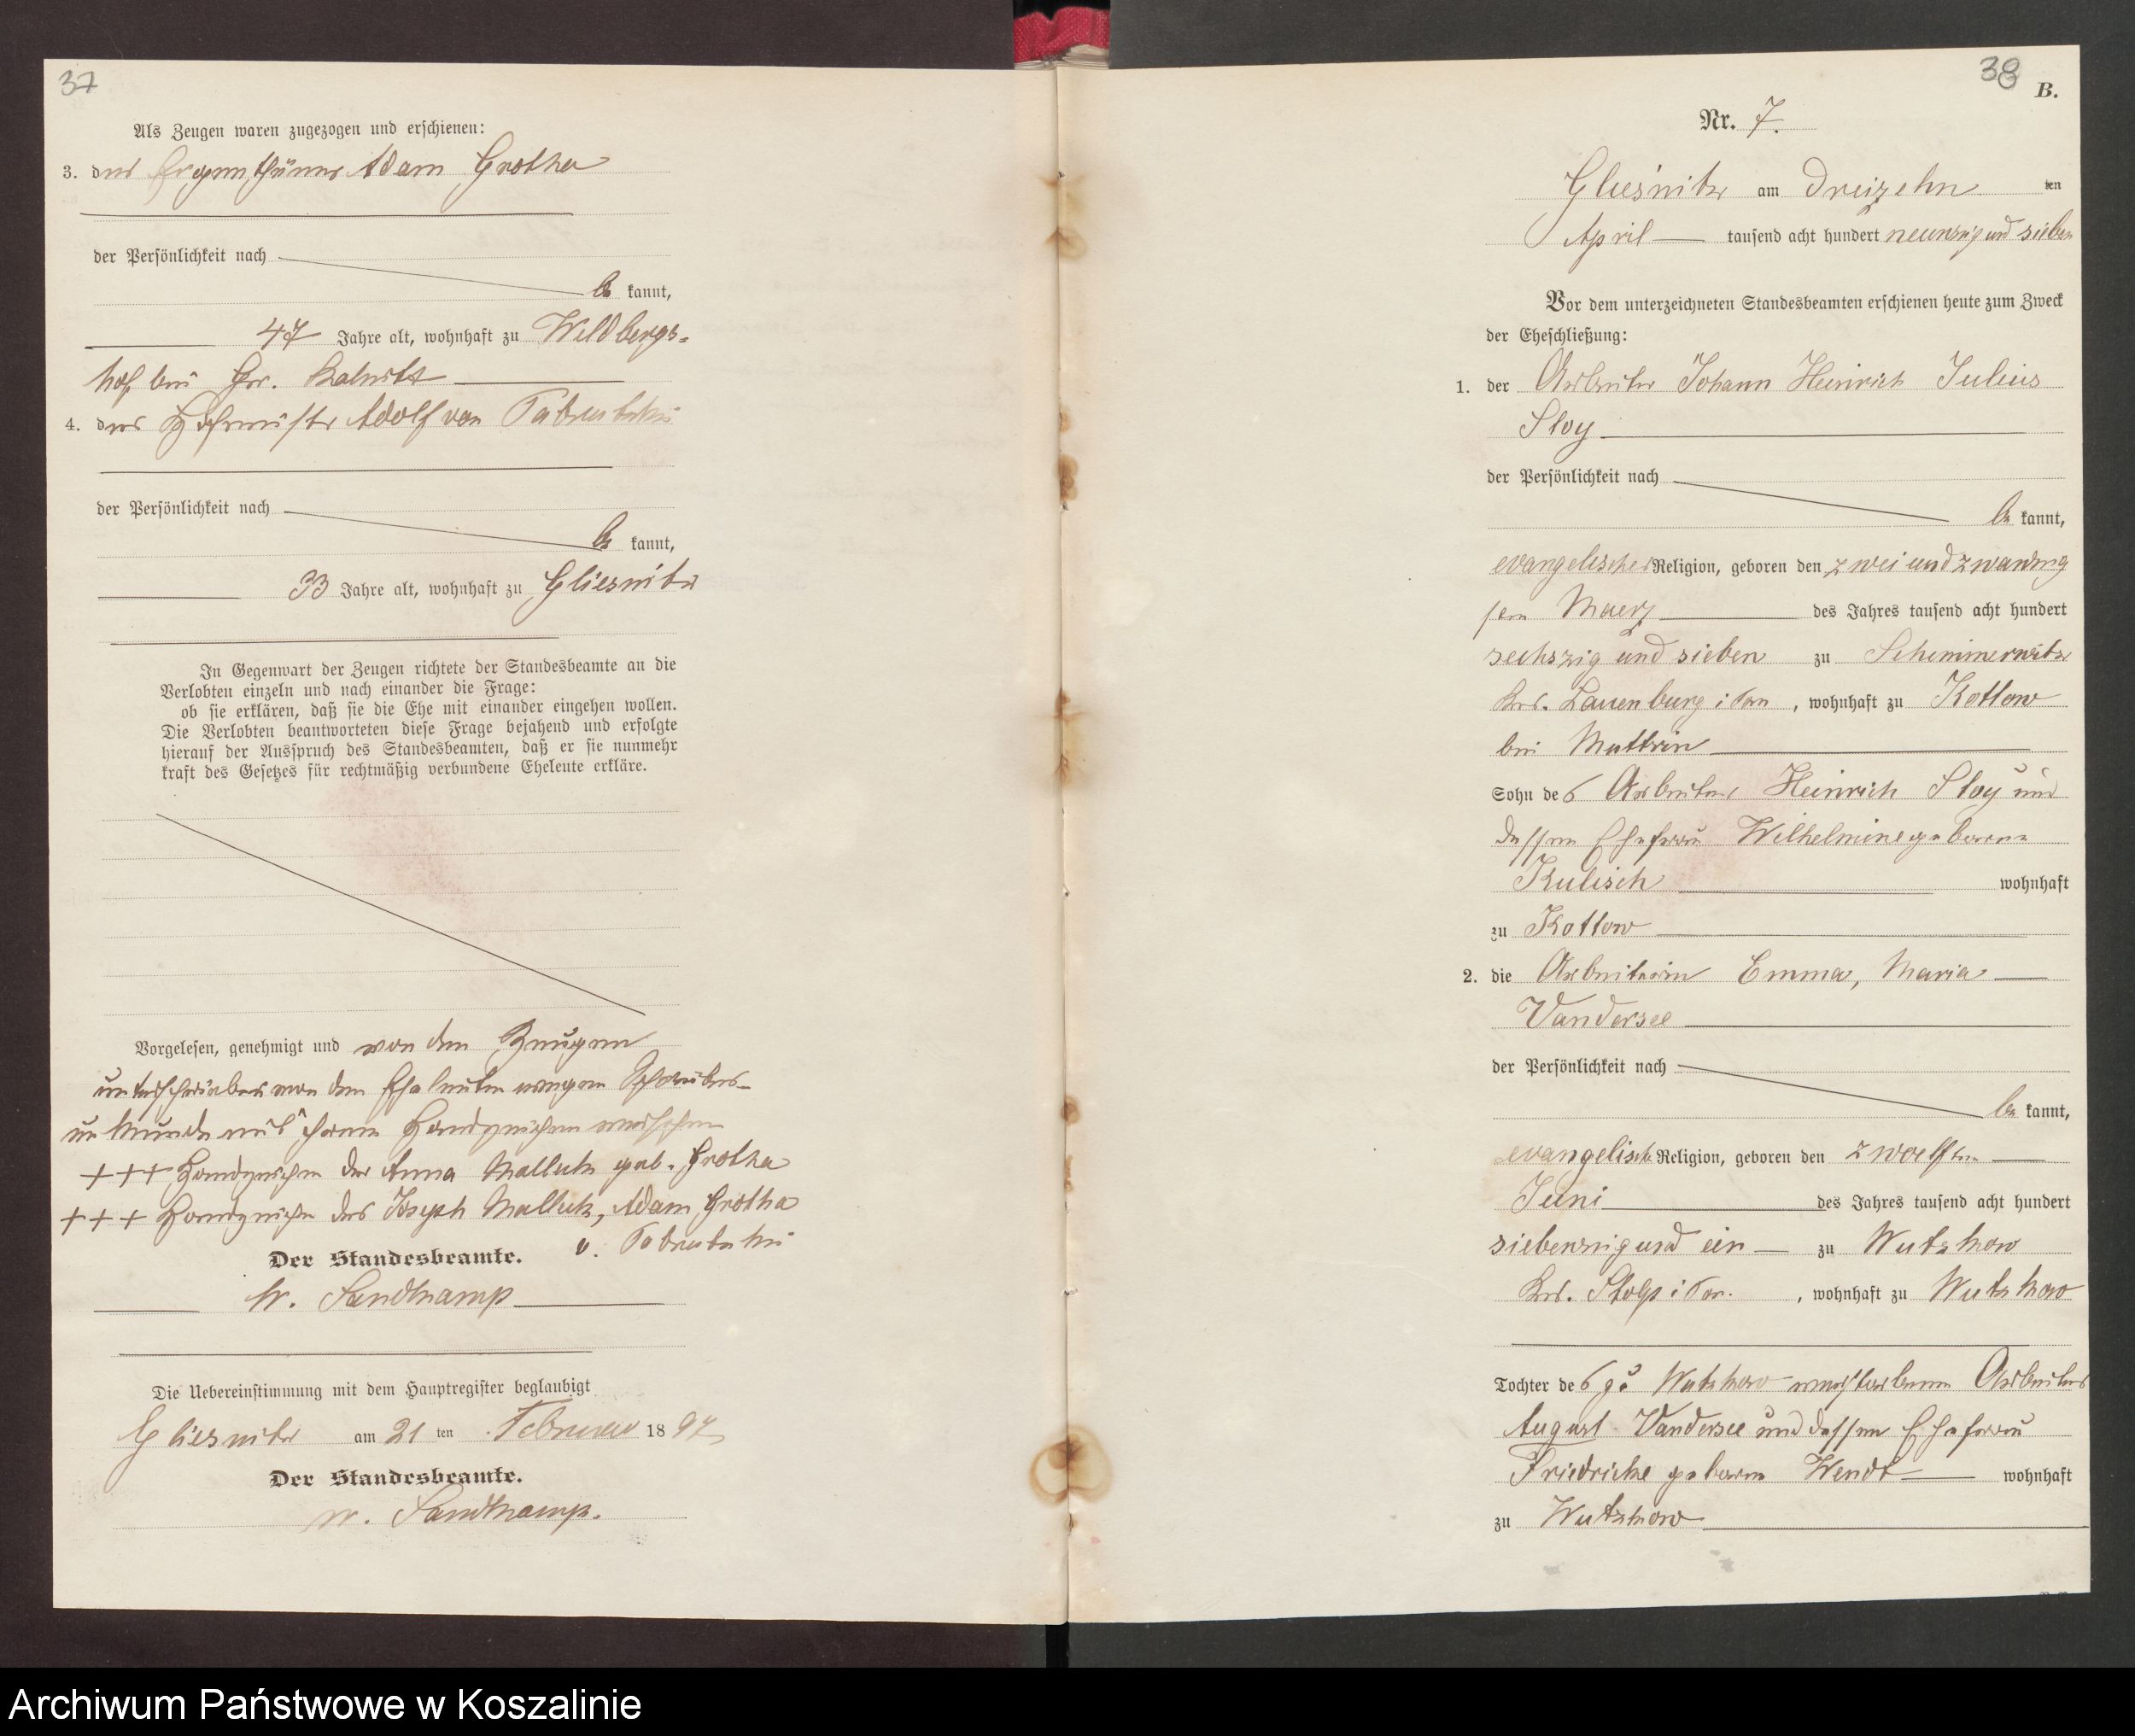 37
Als Zeugen waren zugezogen und erschienen:
3. der Eigenthümer Adam Grotha
der Persönlichkeit nach
be kannt,
47 Jahre alt, wohnhaft zu Wildbergs-
hof bei Gr.
4. der Hofmeister Adolf von
der Persönlichkeit nach
be kannt,
33 Jahre alt, wohnhaft zu Gliesnitz
In Gegenwart der Zeugen richtete der Standesbeamte an die
Verlobten einzeln und nach einander die Frage:
ob sie erklären, daß sie die Ehe mit einander eingehen wollen.
Die Verlobten beantworteten diese Frage bejahend und erfolgte
hierauf der Ausspruch des Standesbeamten, daß er sie nunmehr
kraft des Gesetzes für rechtmäßig verbundene Eheleute erkläre.
Vorgelesen, genehmigt und von den Zeugen
unterschrieben von den Eheleuten wegen Schreibens-
unkunde mit ihrem Handzeichen versehen
+++ Handzeichen der Anna Mallek geb. Grotha
+++ Handzeichen des Joseph Mallek, Adam Grotha
v.
Der Standesbeamte.
W. Sandkamp
Die Uebereinstimmung mit dem Hauptregister beglaubigt
Gliesnitz am 21 ten Februar 18 97
Der Standesbeamte.
W. Sandkamp.
38
B.
Nr. 7.
Gliesnitz am dreizehn ten
April tausend acht hundert neunzig und sieben
Vor dem unterzeichneten Standesbeamten erschienen heute zum Zweck
der Eheschließung:
1. der Arbeiter Johann Heinrich Julius
Sloy
der Persönlichkeit nach
be kannt,
evangelischer Religion, geboren den zwei und zwanzig
sten Maerz des Jahres tausend acht hundert
sechszig und sieben zu Schimmerwitz
Krs. Lauenburg i Pom, wohnhaft zu Kottow
bei Muttrin
Sohn des Arbeiters Heinrich Sloy und
dessen Ehefrau Wilhelmine geborene
Kulisch wohnhaft
zu Kottow
2. die Arbeiterin Emma, Maria
Vandersee
der Persönlichkeit nach
be kannt,
evangelisch Religion, geboren den zwoelften
Juni des Jahres tausend acht hundert
siebenzig und ein zu Wutzkow
Krs. Stolp i Pom., wohnhaft zu Wutzkow
Tochter des zu Wutzkow verstorbenen Arbeiters
August Vandersee und dessen Ehefrau
Friedricke geboren Wendt wohnhaft
zu Wutzkow
Archiwum Państwowe w Koszalinie